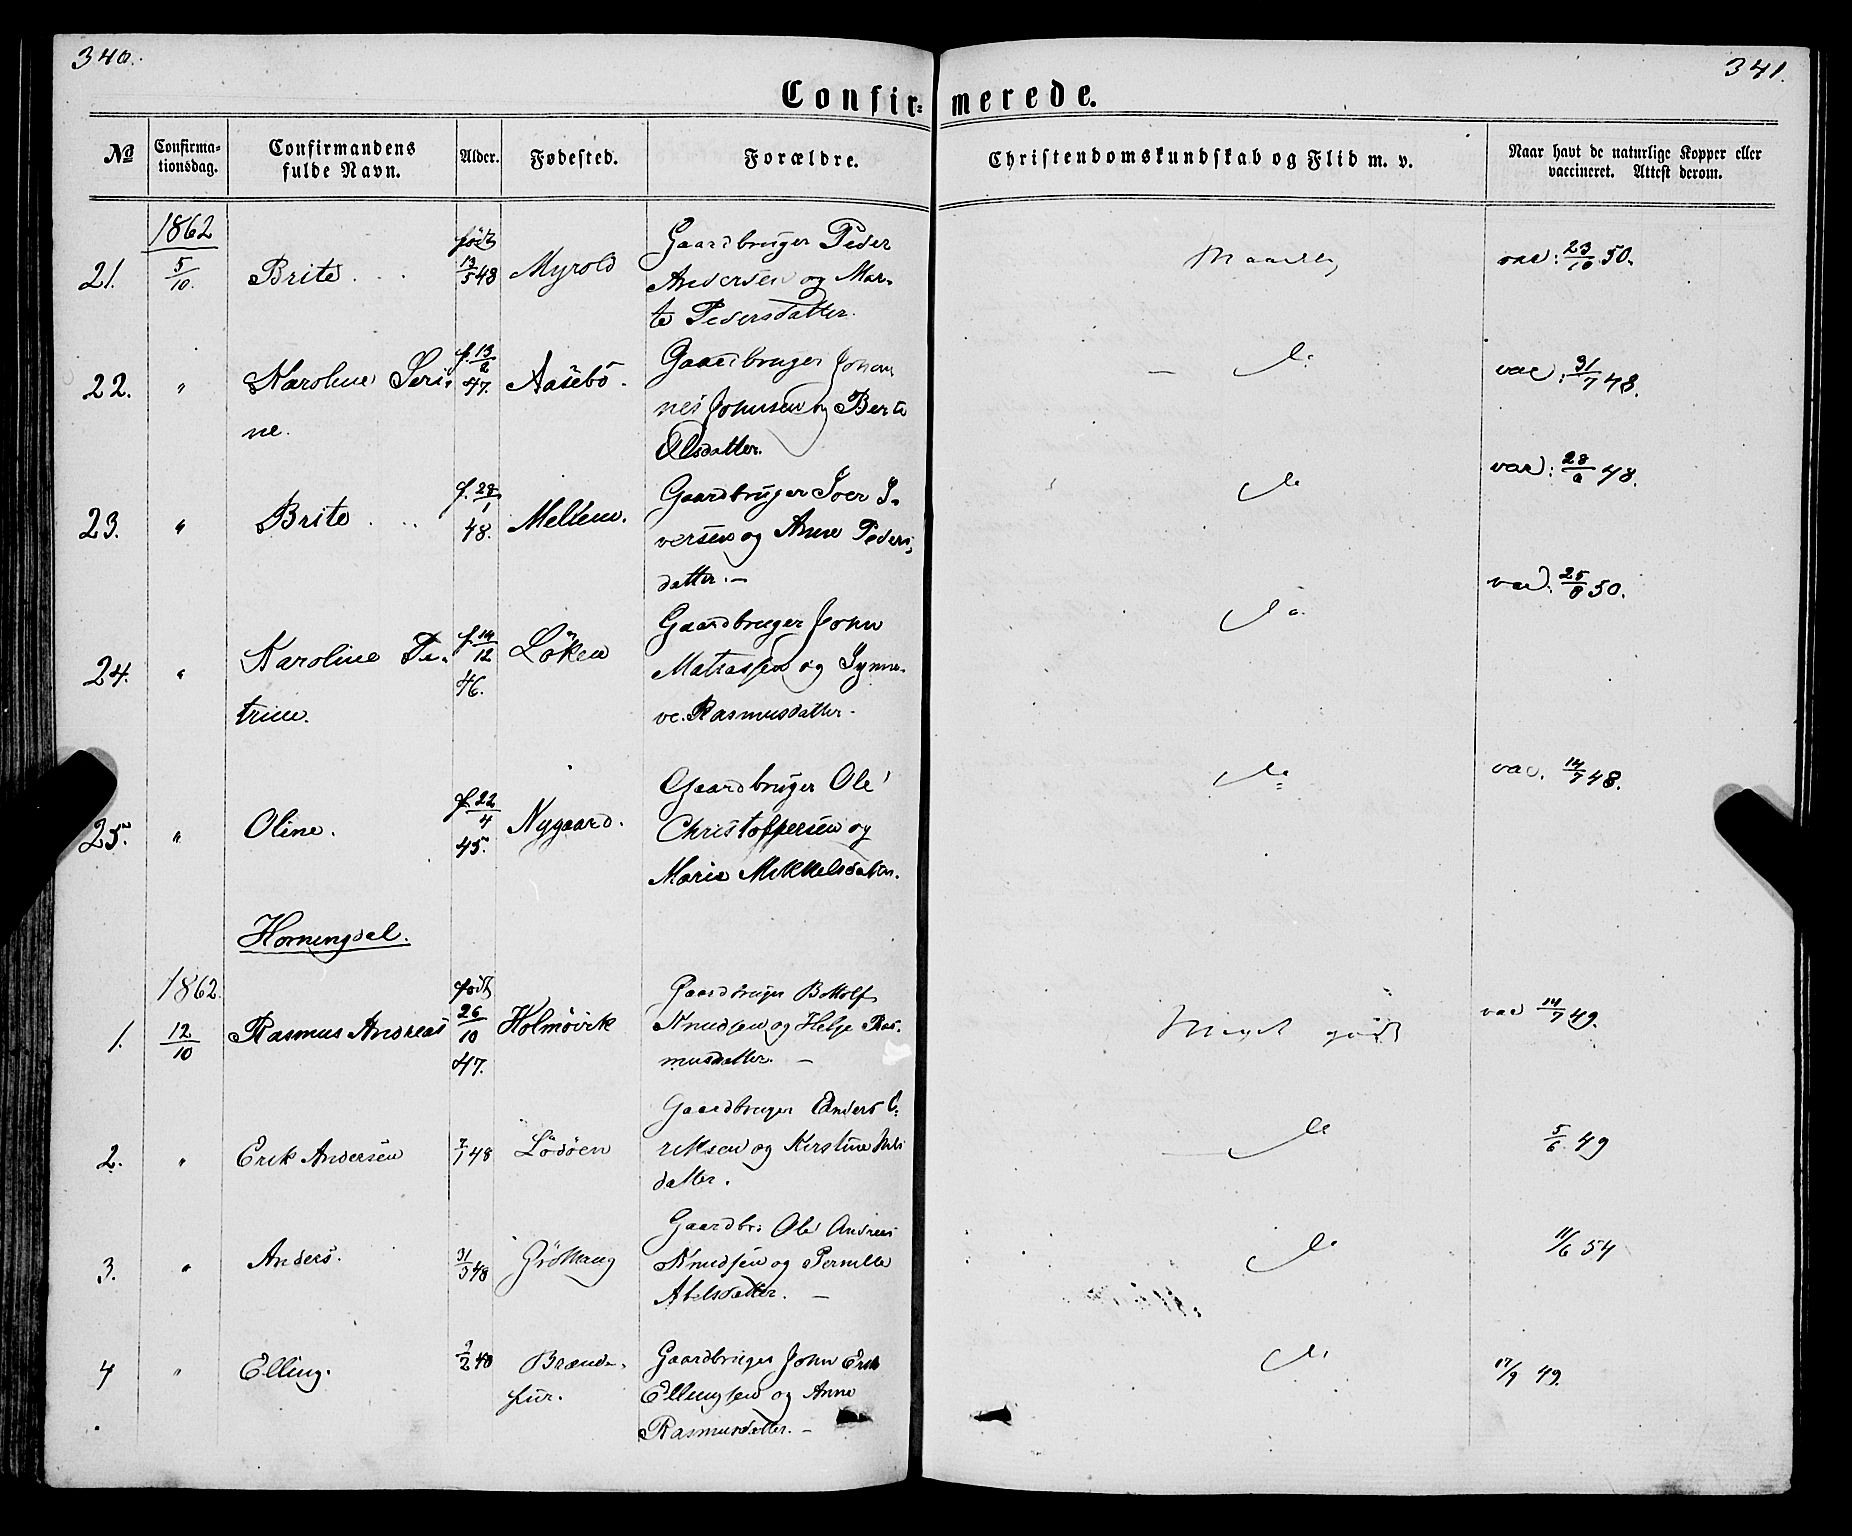 340.
341.
Confir= merede.
No
Confirma-
tionsdag.
Confirmandens
fulde Navn.
Alder.
Fødested.
Forældre.
Christendomskundskab og Flid m. v.
Naar havt de naturlige Kopper eller
vaccineret. Attest derom.
1862
21. 5/10. Brite født 13/5 48 Myrold Gaardbruger Peder
Andersen og Mar-
te Pedersdatter. Maadelig vac: 23/10 50.
22. " Karoline Seri-
ne. f. 13/2 47. Aasebö. Gaardbruger Johan
nes Johnsen og Berte
Olsdatter. do vac: 31/7 48.
23. " Brite f. 28/1 48. Mellem. Gaardbruger Iver I-
versen og Anne Peders
datter. — do vac: 28/9 48.
24. " Karoline Pe-
trine. f. 14/12 46. Löken Gaardbruger John
Matiassen og Synne-
ve Rasmusdatter. do vac: 25/8 50.
25. " Oline. f. 22/4 45. Nygaard. Gaardbruger Ole
Christoffersen og
Marie Mikkelsdatter. do vac. 14/7 48.
Horningdal.
1862.
1. 12/10 Rasmus Andreas født 26/10 47. Holmövik Gaardbruger Bottolf
Knudsen og Helje Ras-
musdatter. — Meget godt vac 14/7 49.
2. " Erik Andersen 7/1 48 Lödöen Gaardbruger Anders E-
riksen og Kirstine Nils
datter. do 5/6. 49
3. " Anders. 31/3 48 Gröttaug Gaardbr: Ole Andreas
Knudsen og Pernille
Abelsdatter. — do 11/6 54
4 " Elling. 2/2 48 Brænde-
fur. Gaardbruger John Erik
Ellingsen og Anne
Rasmusdatter. — do 17/9 49.